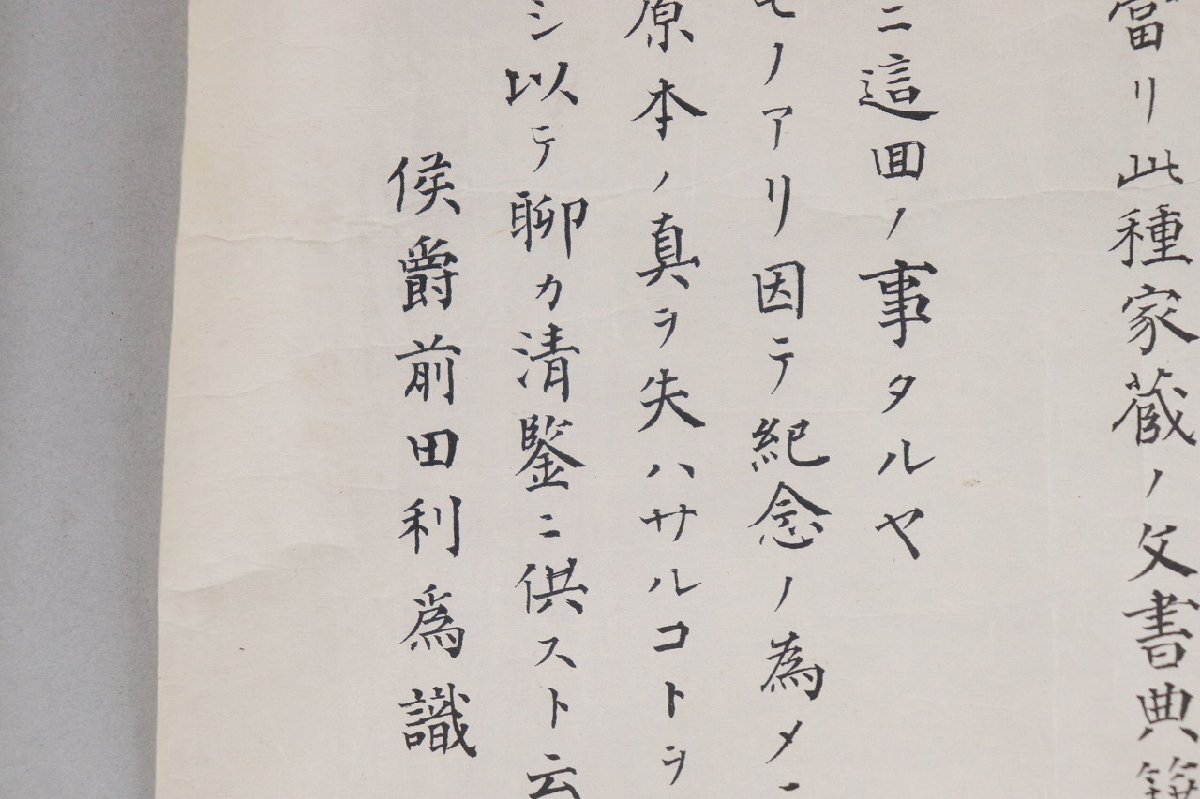 當リ此種家蔵ノ文書典籍
ニ這回ノ事タルヤ
モノアリ因テ紀念ノ為メ
原本ノ真ヲ失ハサルコトヲ
シ以テ聊カ清鑒ニ供スト云
侯爵前田利為識